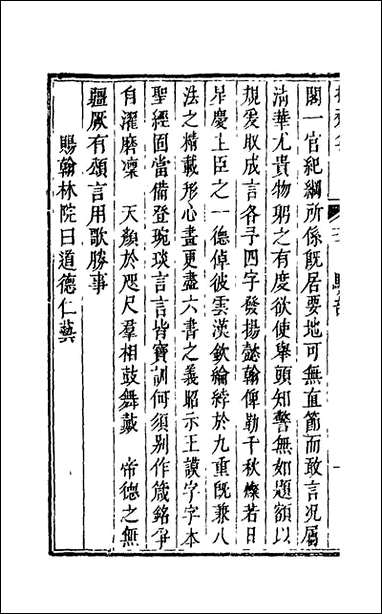 閣一官紀綱所係旣居要地可無直節而敢言況屬
淸華尤貴物躬之有度欲使舉頭知警無如題額以
規爰取成言各予四字發揚懿翰俾勒千秋燦若日
星慶上臣之一德倬彼雲漢欽綸綍於九重旣兼八
法之精載形心畫更盡六書之義昭示王謨字字本
聖經固當備登琬琰言言皆寶訓何須別作箴銘爭
自濯磨凜　天顏於咫尺羣相鼓舞戴　帝德之無
疆厥有頌言用歌勝事
賜翰林院曰道德仁藝